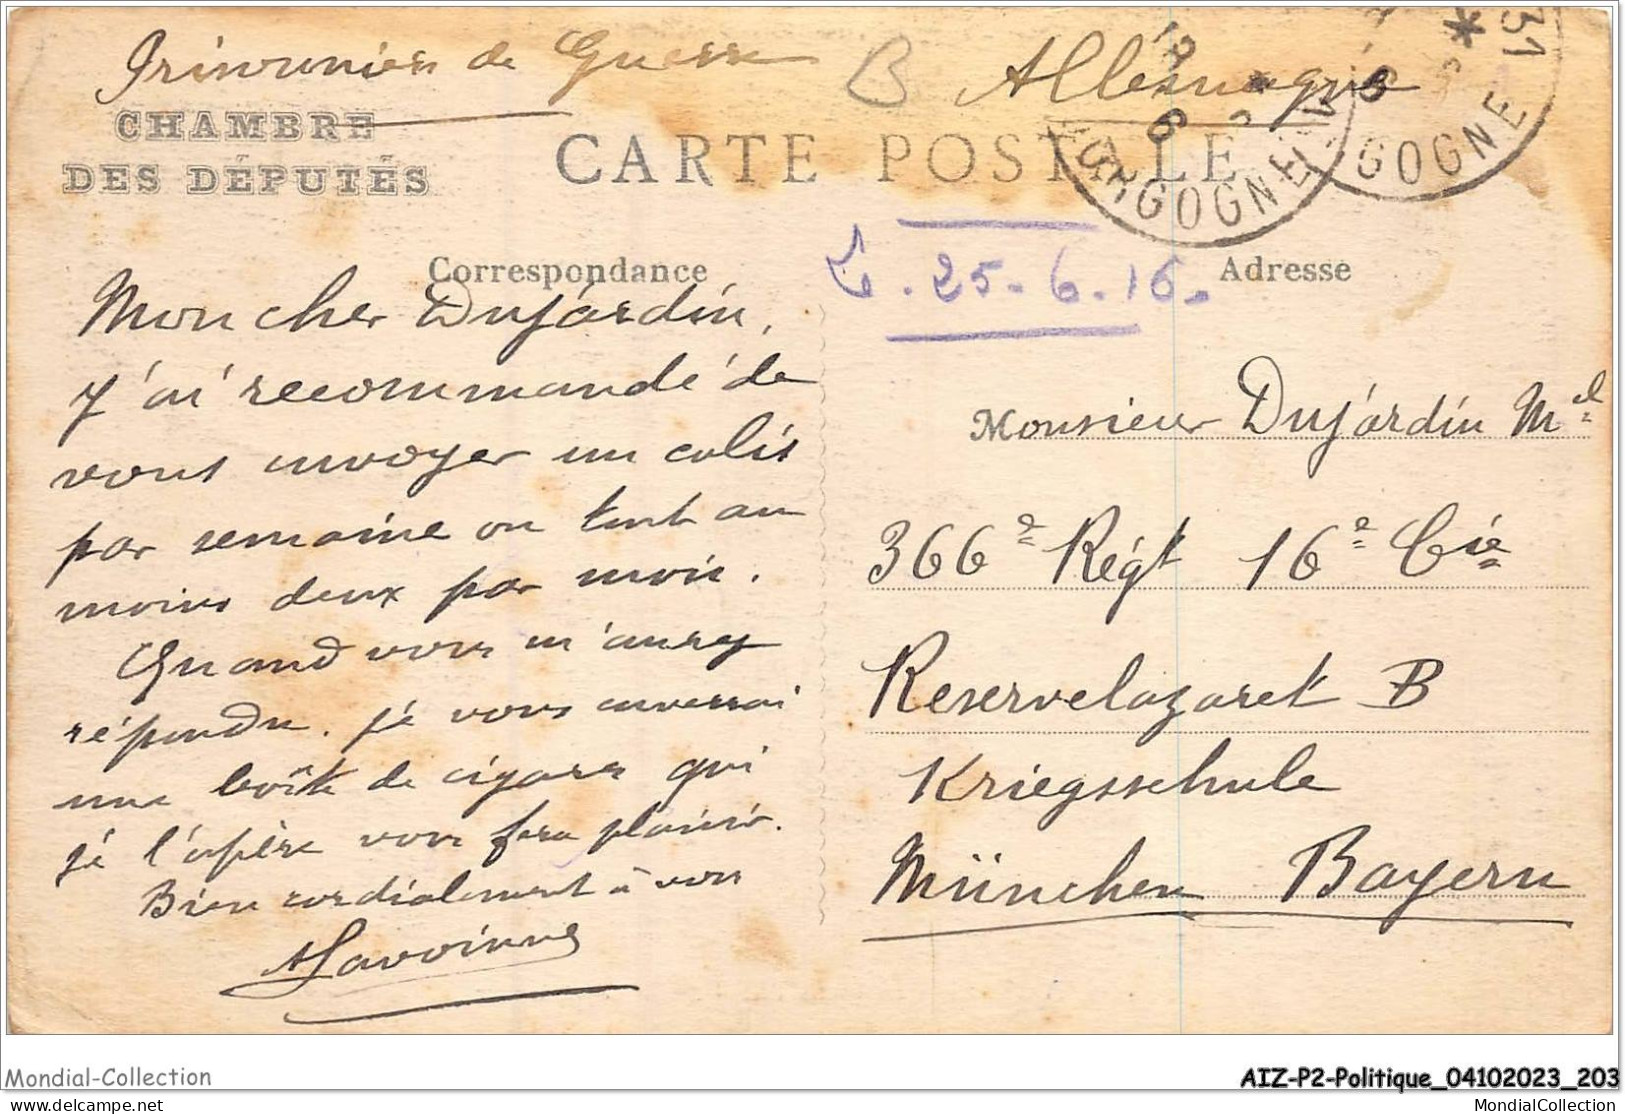 Prisonnier de Guerre B Allemagne
CHAMBRE
DES DÉPUTÉS
CARTE POSTALE
31
GOGNE
GOGNE
Correspondance
25-6-16.
Adresse
Mon cher Dujardin,
J'ai recommandé de
vous envoyer un colis
par semaine ou tout au
moins deux par mois.
Quand vous m'aurez
répondu. je vous enverrai
une boîte de cigares qui
je l'espère vous fera plaisir.
Bien cordialement à vous
Monsieur Dujardin Mel
366e Régt 16e Cie
Reservelazaret B
Kriegsschule
München Bayern
Mondial-Collection
AIZ-P2-Politique_04102023_203
www.delcampe.net
MondialCollection